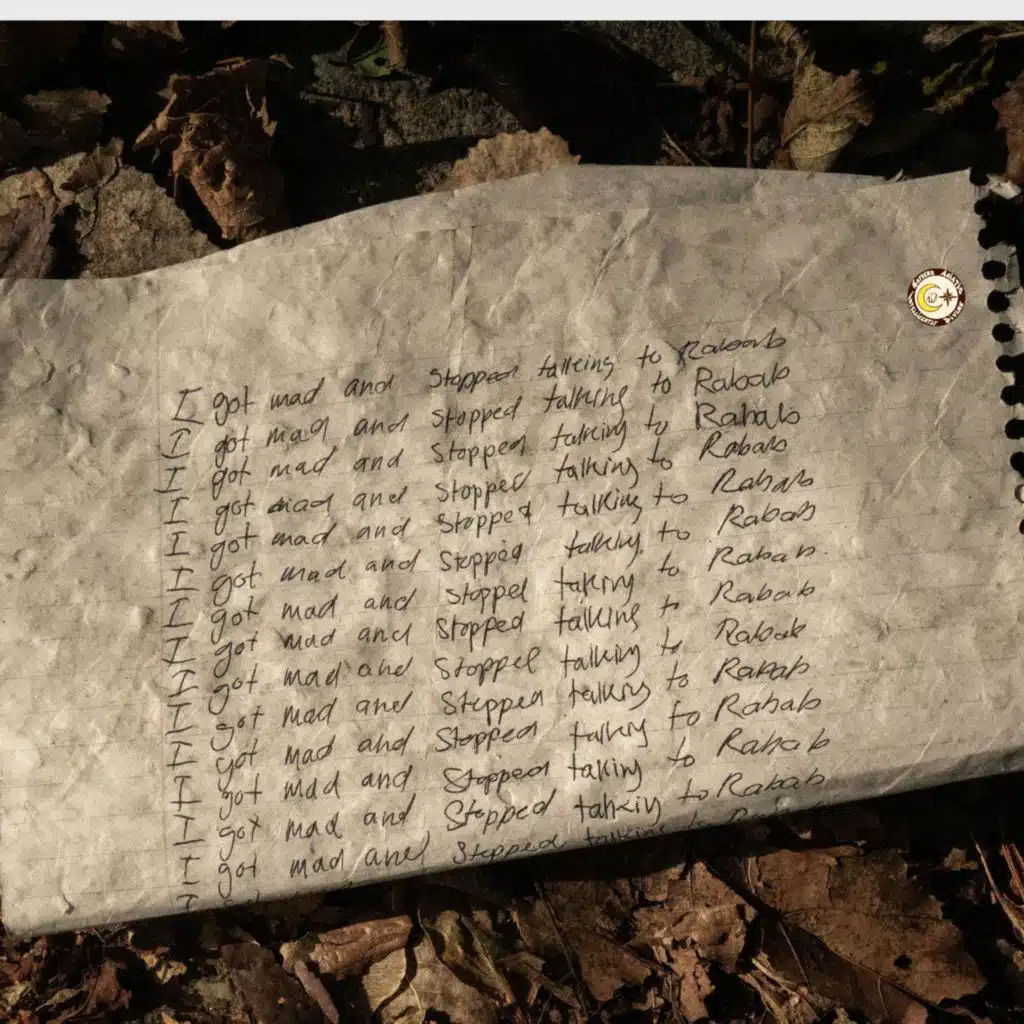 I got mad and Stopped talking to Rabab
I got mad and Stopped talking to Rabab
I got mad and Stopped talking to Rabab
I got mad and Stopped talking to Rabab
I got mad and Stopped talking to Rabab
I got mad and Stopped talking to Rabab
I got mad and Stopped talking to Rabab
I got mad and Stopped talking to Rabab
I got mad and Stopped talking to Rabab
I got mad and Stopped talking to Rabab
I got mad and Stopped talking to Rabab
I got mad and Stopped talking to Rabab
I got mad and Stopped talking to Rabab
I got mad and Stopped talking to